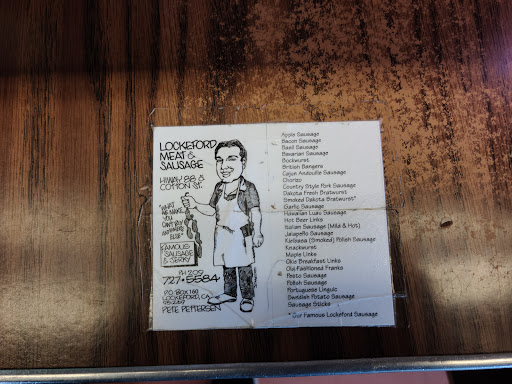 LOCKEFORD
MEAT &
SAUSAGE
HIWAY 88 &
COTTON ST.
"WHAT
WE MAKE,
YOU
CAN'T BUY
ANYWHERE
ELSE"
FAMOUS
SAUSAGE
& JERKY
PH. 209
727•5584
P.O. BOX 162
LOCKEFORD, CA.
95237
PETE PETERSEN
Apple Sausage
Bacon Sausage
Basil Sausage
Bavarian Sausage
Bockwurst
British Bangers
Cajun Andouille Sausage
Chorizo
Country Style Pork Sausage
Dakota Fresh Bratwurst
Smoked Dakota Bratwurst*
Garlic Sausage
Hawaiian Luau Sausage
Hot Beer Links
Italian Sausage (Mild & Hot)
Jalapeño Sausage
Kielbasa (Smoked) Polish Sausage
Knackwurst
Maple Links
Okie Breakfast Links
Old Fashioned Franks
Pesto Sausage
Polish Sausage
Portuguese Linguic
Swedish Potato Sausage
Sausage Sticks
* Our Famous Lockeford Sausage